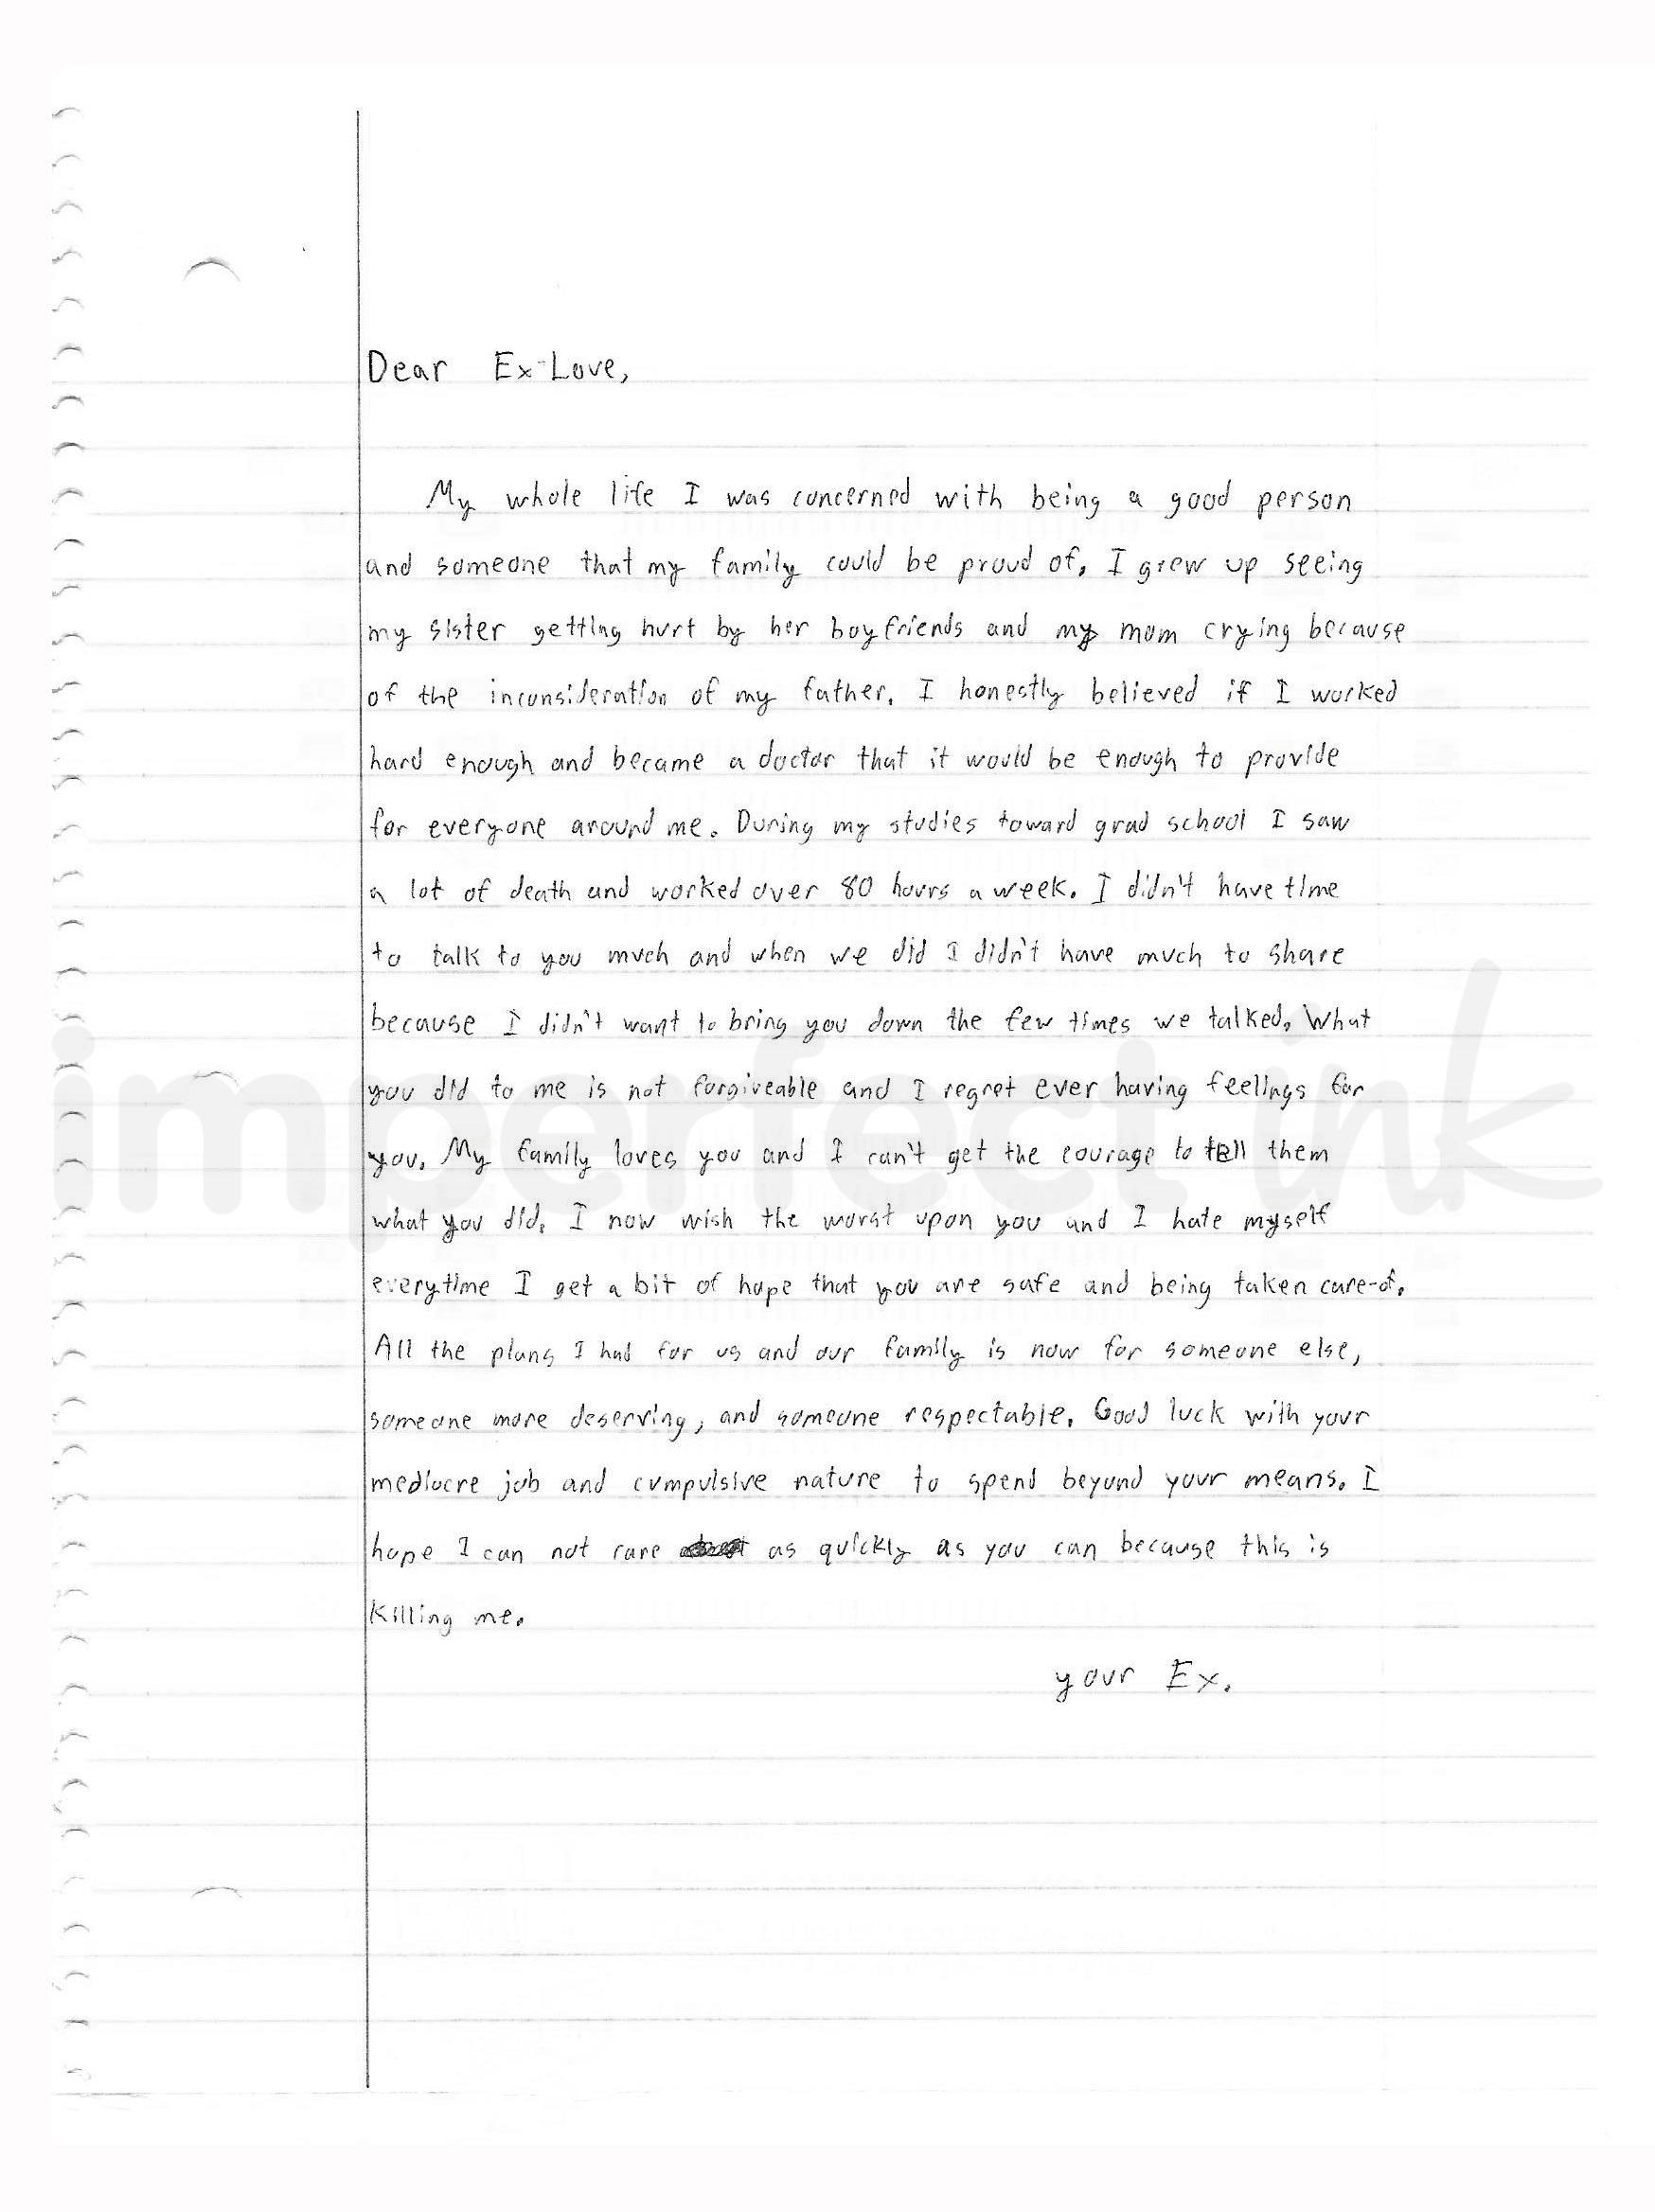 Dear Ex-Love,
My whole life I was concerned with being a good person
and someone that my family could be proud of. I grew up seeing
my sister getting hurt by her boyfriends and my mom crying because
of the inconsideration of my father. I honestly believed if I worked
hard enough and became a doctor that it would be enough to provide
for everyone around me. During my studies toward grad school I saw
a lot of death and worked over 80 hours a week. I didn't have time
to talk to you much and when we did I didn't have much to share
because I didn't want to bring you down the few times we talked. What
you did to me is not forgiveable and I regret ever having feelings for
you. My family loves you and I can't get the courage to tell them
what you did. I now wish the worst upon you and I hate myself
everytime I get a bit of hope that you are safe and being taken care-of.
All the plans I had for us and our family is now for someone else,
someone more deserving, and someone respectable. Good luck with your
mediocre job and compulsive nature to spend beyond your means. I
hope I can not care as quickly as you can because this is
killing me.
your Ex.
imperfect ink